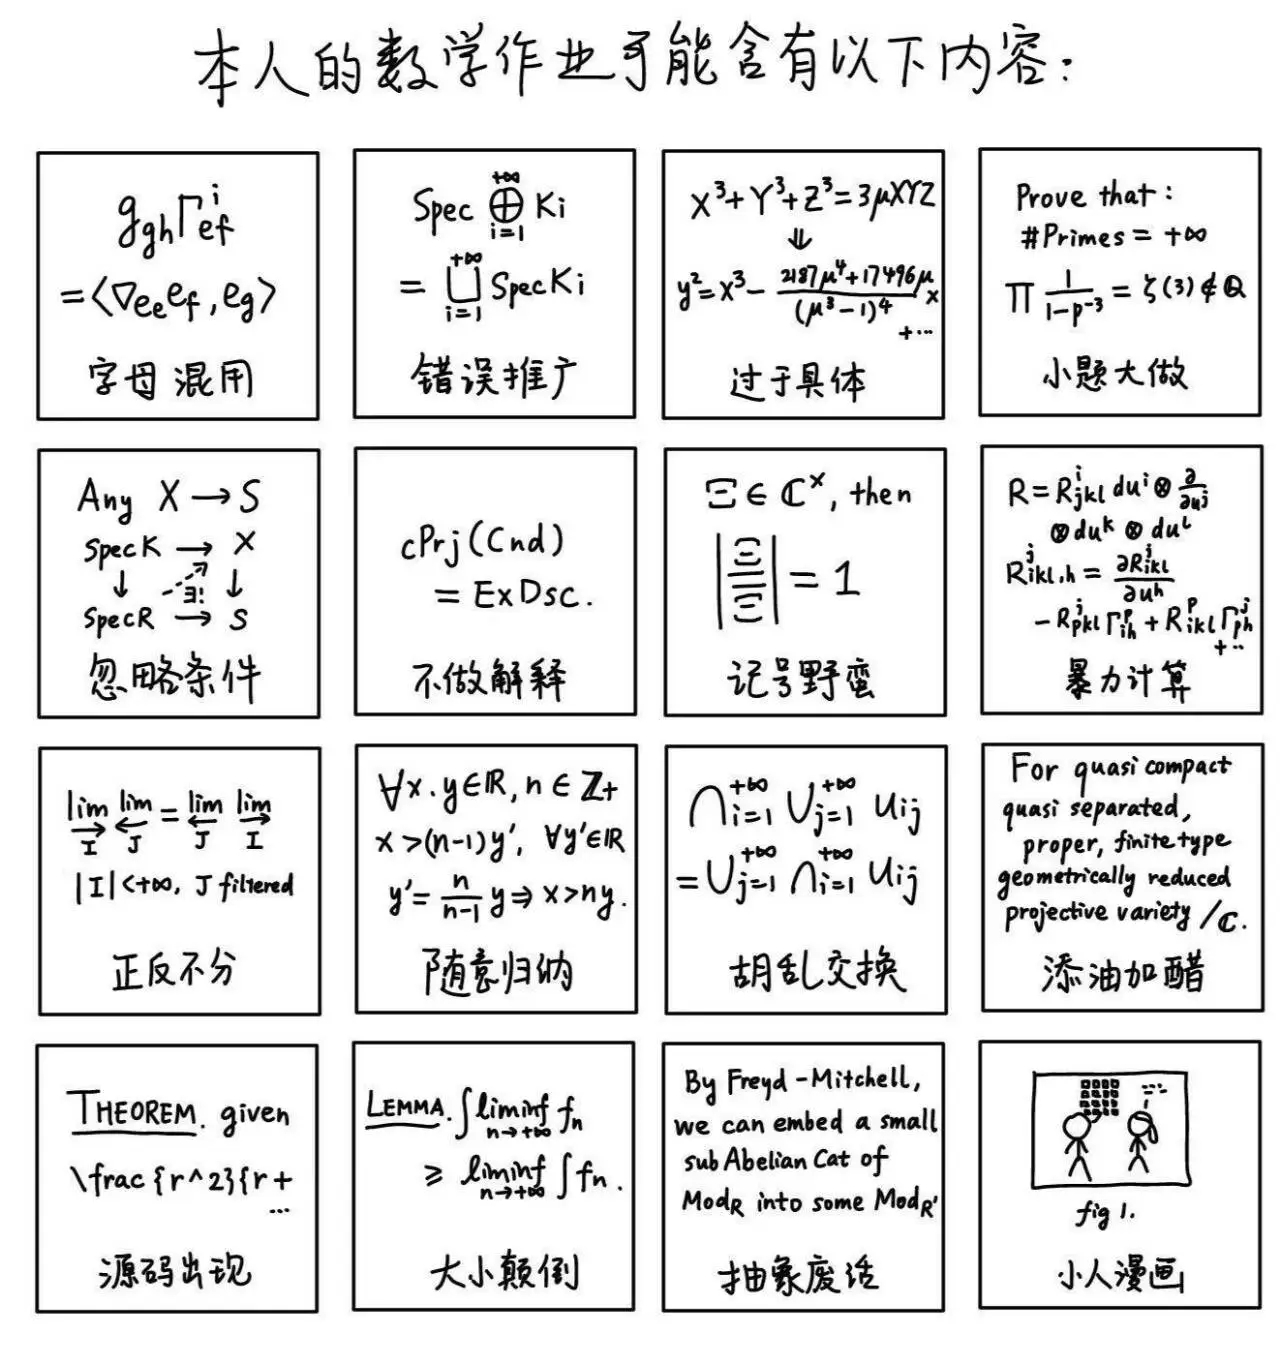 本人的数学作业可能含有以下内容：
g_{gh}Γ^i_{ef}
=⟨∇_{e_e}e_f, e_g⟩
字母混用
Spec ⊕_{i=1}^{+∞} Ki
= ⊔_{i=1}^{+∞} Spec Ki
错误推广
X³+Y³+Z³=3μXYZ
⇓
y²=x³-\frac{2187μ⁴+17496μ}{(μ³-1)⁴}x
+…
过于具体
Prove that:
#Primes = +∞
∏ \frac{1}{1-p^{-3}} = ζ(3)∉ℚ
小题大做
Any X → S
SpecK → X
↓ ∃! ↓
SpecR → S
忽略条件
cPrj(Cnd)
= ExDsc.
不做解释
Ξ∈ℂ^×, then
|\frac{Ξ}{\overline{Ξ}}| = 1
记号野蛮
R=R^i_{jkl}du^i⊗\frac{∂}{∂u^j}
⊗du^k⊗du^l
R^j_{ikl,h}=\frac{∂R^j_{ikl}}{∂u^h}
-R^j_{pkl}Γ^p_{ih}+R^p_{ikl}Γ^j_{ph}
+…
暴力计算
lim→_I lim←_J = lim←_J lim→_I
|I|<+∞, J filtered
正反不分
∀x.y∈ℝ, n∈ℤ+
x>(n-1)y', ∀y'∈ℝ
y'=\frac{n}{n-1}y⇒x>ny.
随意归纳
⋂_{i=1}^{+∞} ⋃_{j=1}^{+∞} Uij
=⋃_{j=1}^{+∞} ⋂_{i=1}^{+∞} Uij
胡乱交换
For quasi compact
quasi separated,
proper, finite type
geometrically reduced
projective variety /ℂ.
添油加醋
THEOREM. given
\frac{r^2}{r+
…
源码出现
LEMMA. ∫liminf_{n→+∞} fn
≥ liminf_{n→+∞} ∫fn.
大小颠倒
By Freyd-Mitchell,
we can embed a small
sub Abelian Cat of
Mod_R into some Mod_R'
抽象废话
fig 1.
小人漫画